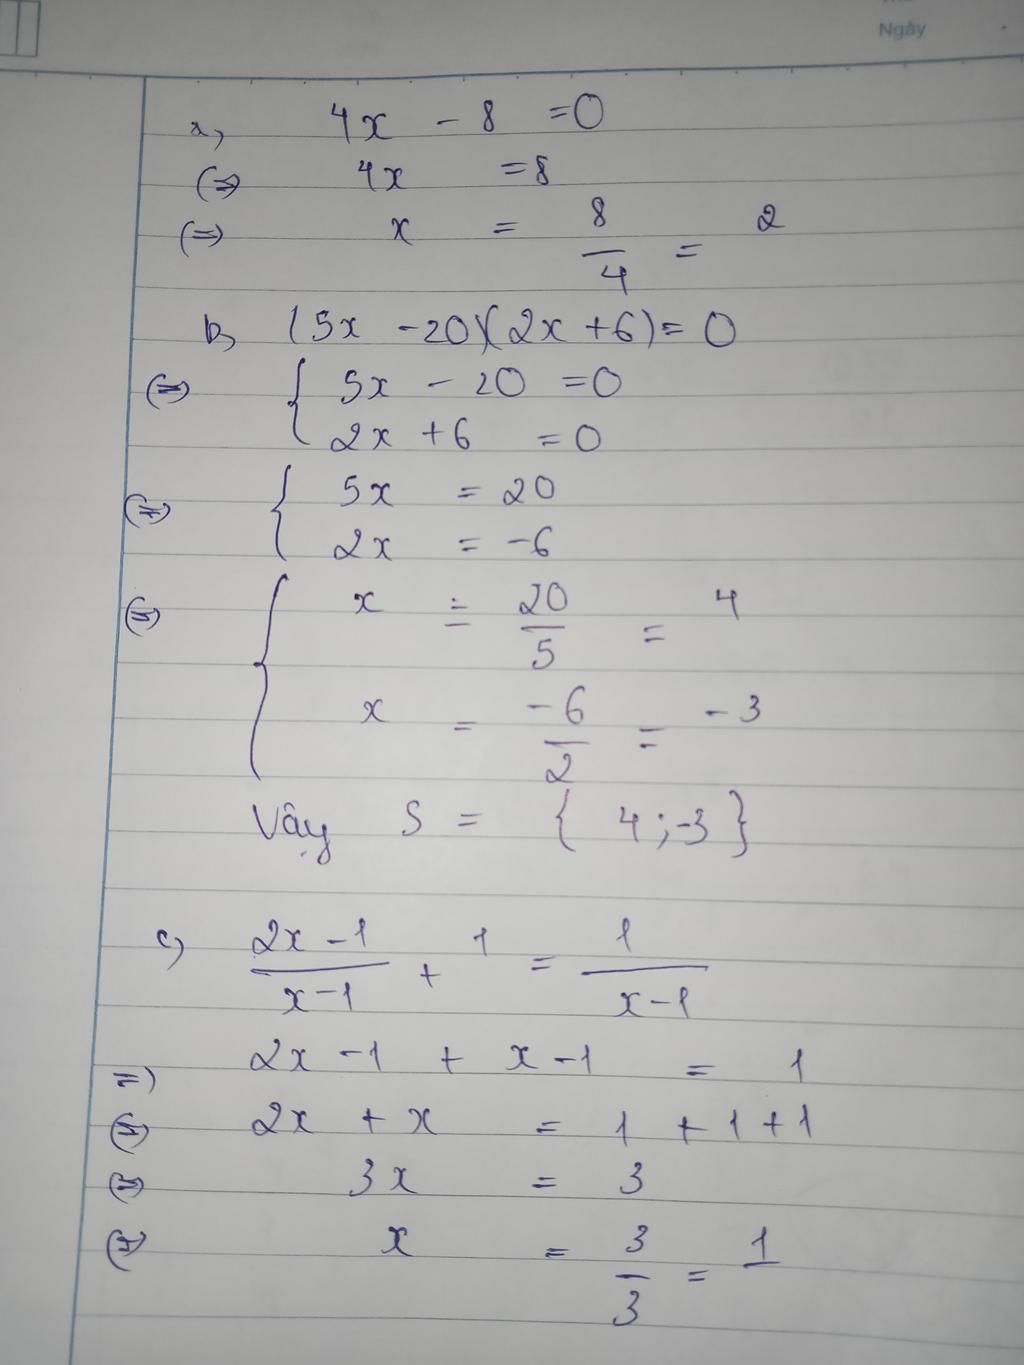 Ngày
a, 4x - 8 = 0
(=) 4x = 8
(=) x = 8/4 = 2
b, (5x - 20)(2x + 6) = 0
(=) { 5x - 20 = 0
2x + 6 = 0
(=) { 5x = 20
2x = -6
(=) { x = 20/5 = 4
x = -6/2 = -3
Vậy S = { 4 ; -3 }
c, (2x - 1)/(x - 1) + 1 = 1/(x - 1)
=) 2x - 1 + x - 1 = 1
(=) 2x + x = 1 + 1 + 1
(=) 3x = 3
(=) x = 3/3 = 1